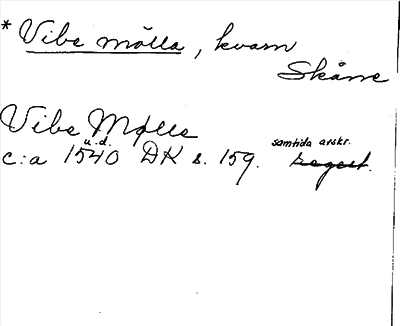 * Vibe mölla, kvarn
Skåne
Vibe Mølle
u.d.
c:a 1540 DK s. 159. samtida avskr.
regest.